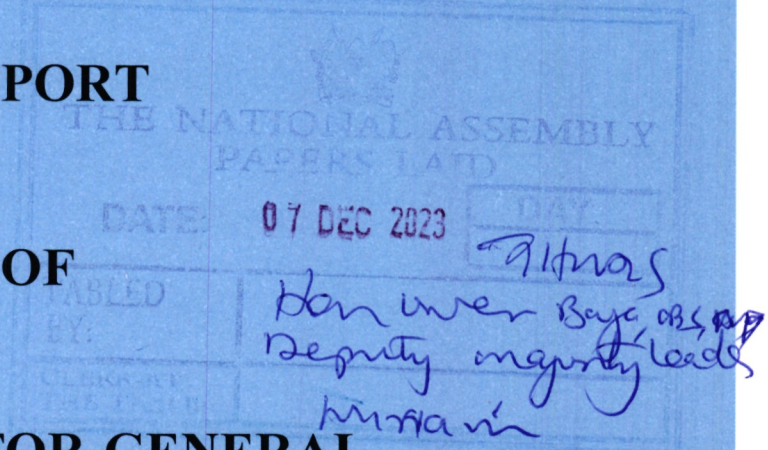 PORT
THE NATIONAL ASSEMBLY
PAPERS LAID
DATE: 07 DEC 2023 DAY
Thurs
OF
TABLED
BY:
Hon Owen Baya, CBS, MP
Deputy majority Leader
CLERK-AT
THE-TABLE
TOR-GENERAL